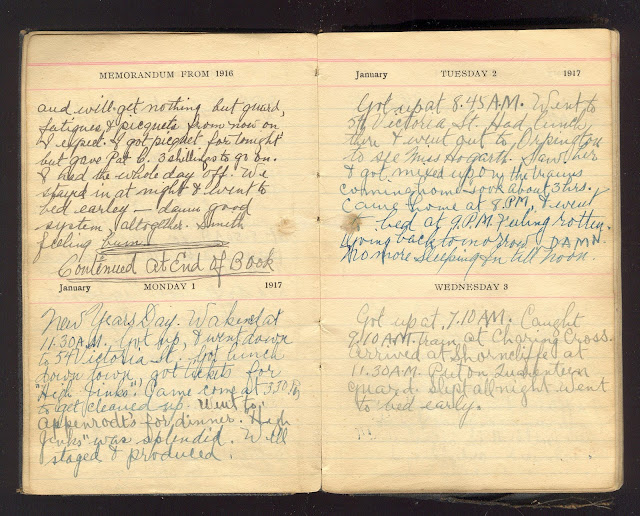 MEMORANDUM FROM 1916
and will get nothing but guard,
fatigues & picquets from now on
I expect. I got picquet for tonight
but gave Pat O. 3 shillings to go on.
I had the whole day off. We
stayed in at night & went to
bed earley — damn good
system, altogether. Smith
feeling bum.
Continued at End of Book
January MONDAY 1 1917
New Years Day. Wakened at
11.30 A.M. Got up, & went down
to 54 Victoria St. Got lunch
down town, got tickets for
"High Jinks". Came home at 3.30 P.M.
to get cleaned up. Went to
Appenrodt's for dinner. "High
Jinks" was splendid. Well
staged & produced.
January TUESDAY 2 1917
Got up at 8.45 A.M. Went to
54 Victoria St. Had lunch
there & went out to Orpington
to see Miss Hogarth. Saw her
& got mixed up on the trains
coming home — took about 3 hrs.
Came home at 8 P.M., & went
to bed at 9 P.M. Feeling rotten.
Going back tomorrow, DAMN.
No more sleeping in till noon.
WEDNESDAY 3
Got up at 7.10 A.M. Caught
9.10 A.M. train at Charing Cross.
Arrived at Shorncliffe at
11.30 A.M. Put on
guard. Slept all night went
to bed early.